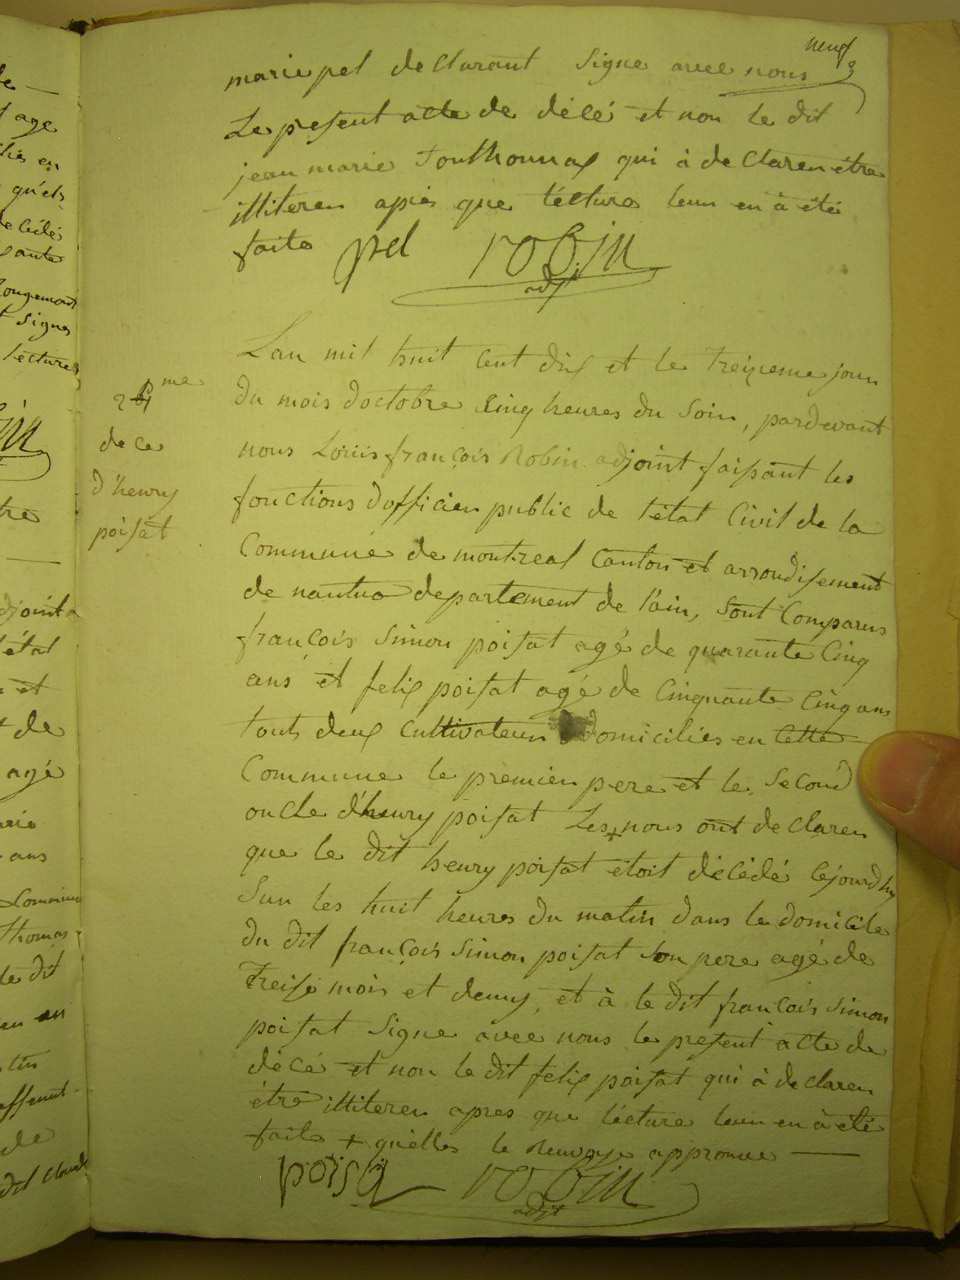 neuf
marie pel declarant signe avec nous
Le present acte de décé et non le dit
jean marie Tonthonnax qui à declaren être
illiteren apies que lécture leur en à été
faite pel robin
adjt
L'an mil huit cent dix et le treizieme jour
du mois doctobre Cinq heures du Soir, pardevant
nous Louis françois Robin adjoint faisant les
fonctions dofficier public de l'état Civil de la
Commune de montreal Canton et arrondisement
de nantua departement de l'ain, Sont Comparus
françois Simon poisat agé de quarante Cinq
ans et felix poisat agé de Cinquante Cinq ans
touts deux Cultivateurs domiciliés en Cette
Commune le premier pere et le Second
oncle d'henry poisat Les + nous ont declaren
que le dit henry poisat étoit décédé cejourdhuy
Sur les huit heures du matin dans le domicile
du dit françois Simon poisat son pere agé de
Treise mois et demy, et à le dit françois Simon
poisat Signe avec nous le present acte de
décé et non le dit felix poisat qui à declaren
être illiteren apres que lécture leur en à été
faite + quelles le renvoye approuve
poisat robin
adjt
me
dece
d'henry
poisat